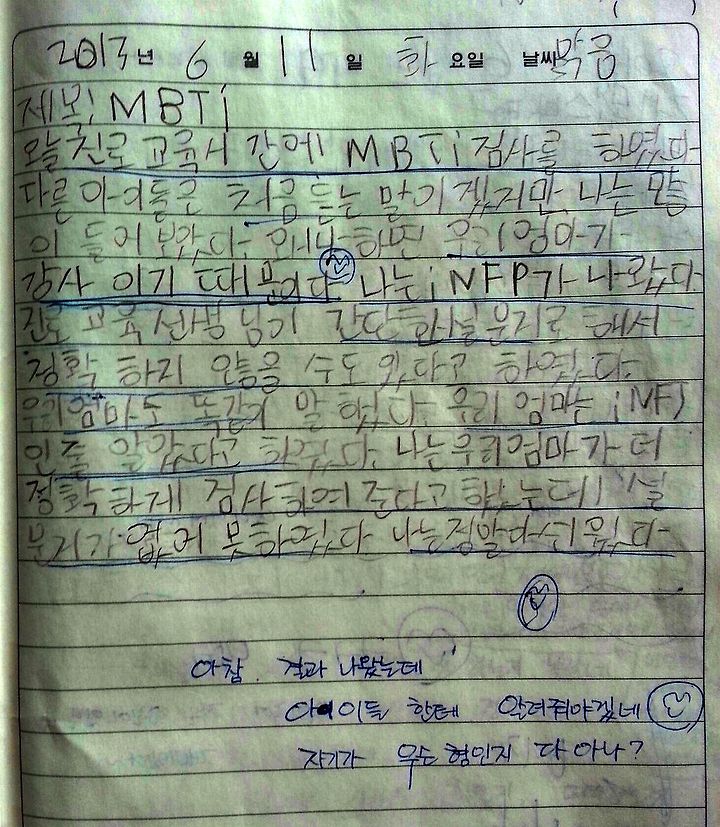 2013년 6월 11일 화요일 날씨 맑음
제목: MBTi
오늘 진로교육시간에 MBTi 검사를 하였다
다른 아이들은 처음 듣는 말이겠지만 나는 많
이 들어보았다. 왜냐하면 우리 엄마가
강사 이기 때문이다 나는 iNFP가 나왔다
진로교육 선생님이 간단한 시험문지로 해서
정확 하지 않을 수도 있다고 하였다.
우리엄마도 똑같이 말했다. 우리 엄마는 iNFJ
인줄 알았다고 하였다. 나는 우리엄마가 더
정확하게 검사하여 준다고 했는데
문지가 없어 못하였다 나는 정말 아쉬웠다
아참. 결과 나왔는데
아이들 한테 알려줘야겠네
자기가 무슨형인지 다 아나?